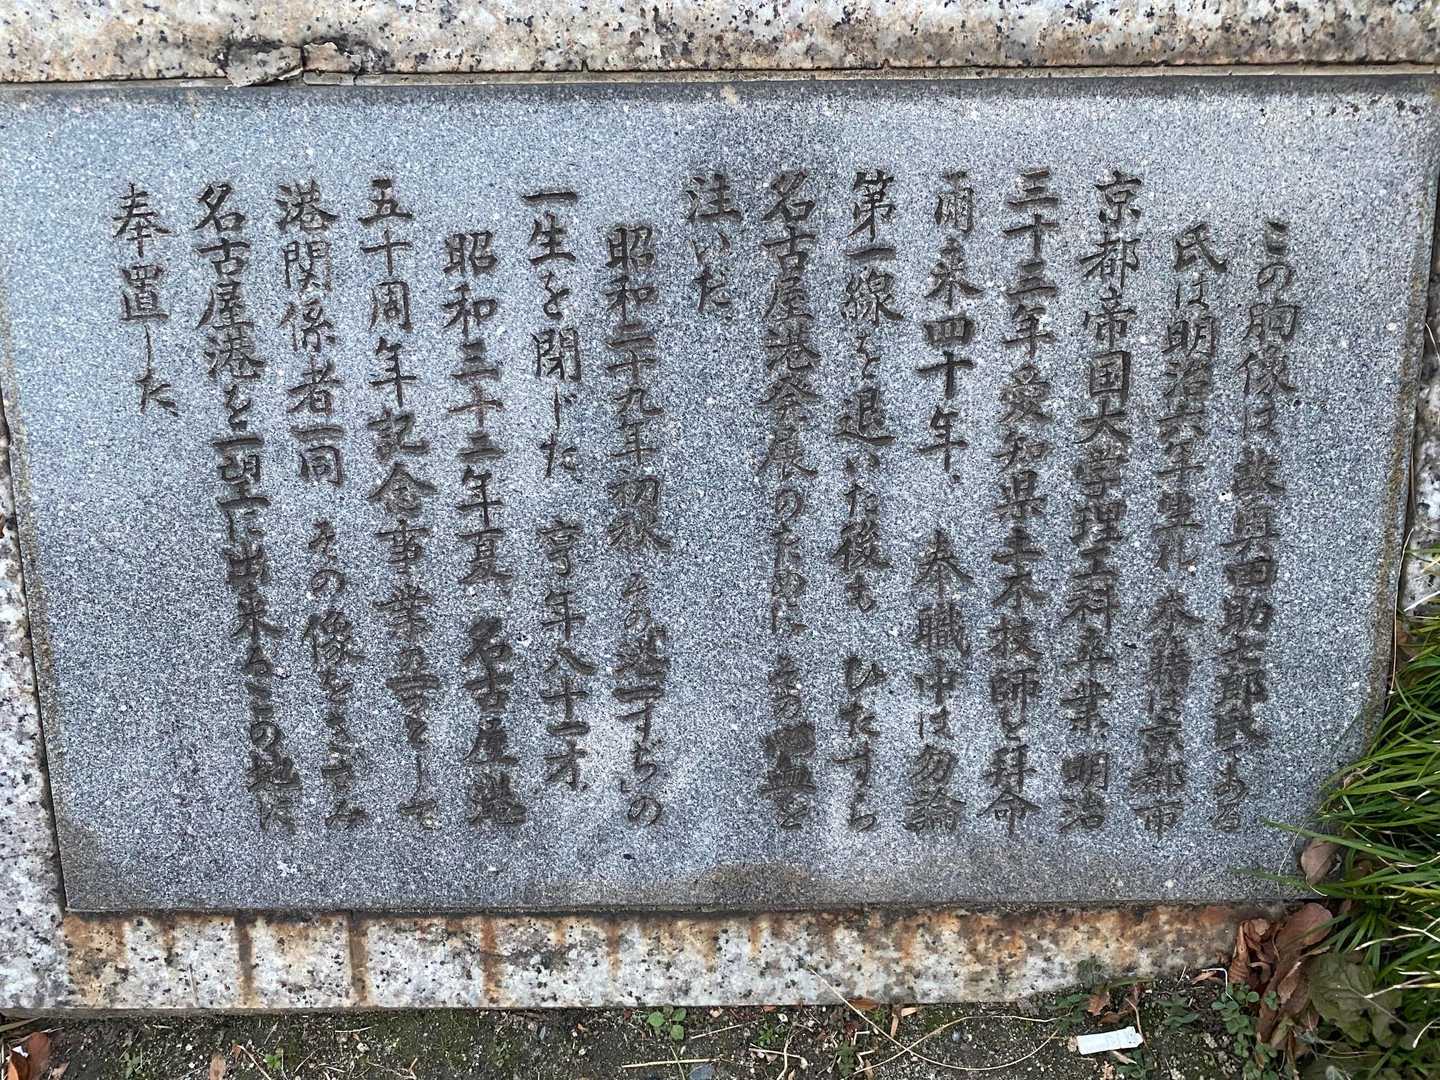 この胸像は故奥田助七郎氏である
氏は明治六年生れ 本籍は京都市
京都帝国大学理工科卒業 明治
三十三年愛知県土木技師を拝命
爾来四十年 奉職中は勿論
第一線を退いた後も ひたすら
名古屋港発展のために その心血を
注いだ
昭和二十九年初秋 その港一すぢの
一生を閉じた 享年八十二才
昭和三十二年夏 名古屋港
五十周年記念事業の一つとして
港関係者一同 その像をきざみ
名古屋港を一望に出来るこの地に
奉置した